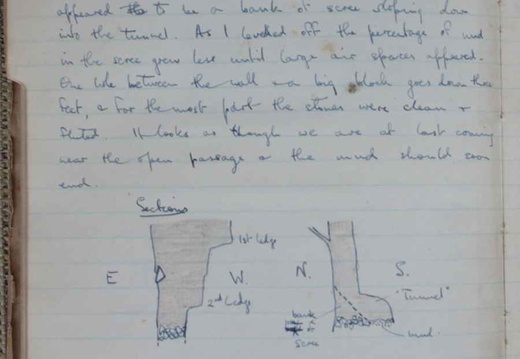 appeared to be a bank of scree sloping down
into the tunnel. As I worked off the percentage of mud
in the scree grew less until large air spaces appeared.
One hole between the wall & a big block goes down three
feet, & for the most part the stones were clean &
It looks as though we are at last coming
near the open passage & the mud should soon
end.
Sections
1st Ledge
E W. N. S.
"Tunnel"
2nd Ledge
bank
of
scree
mud